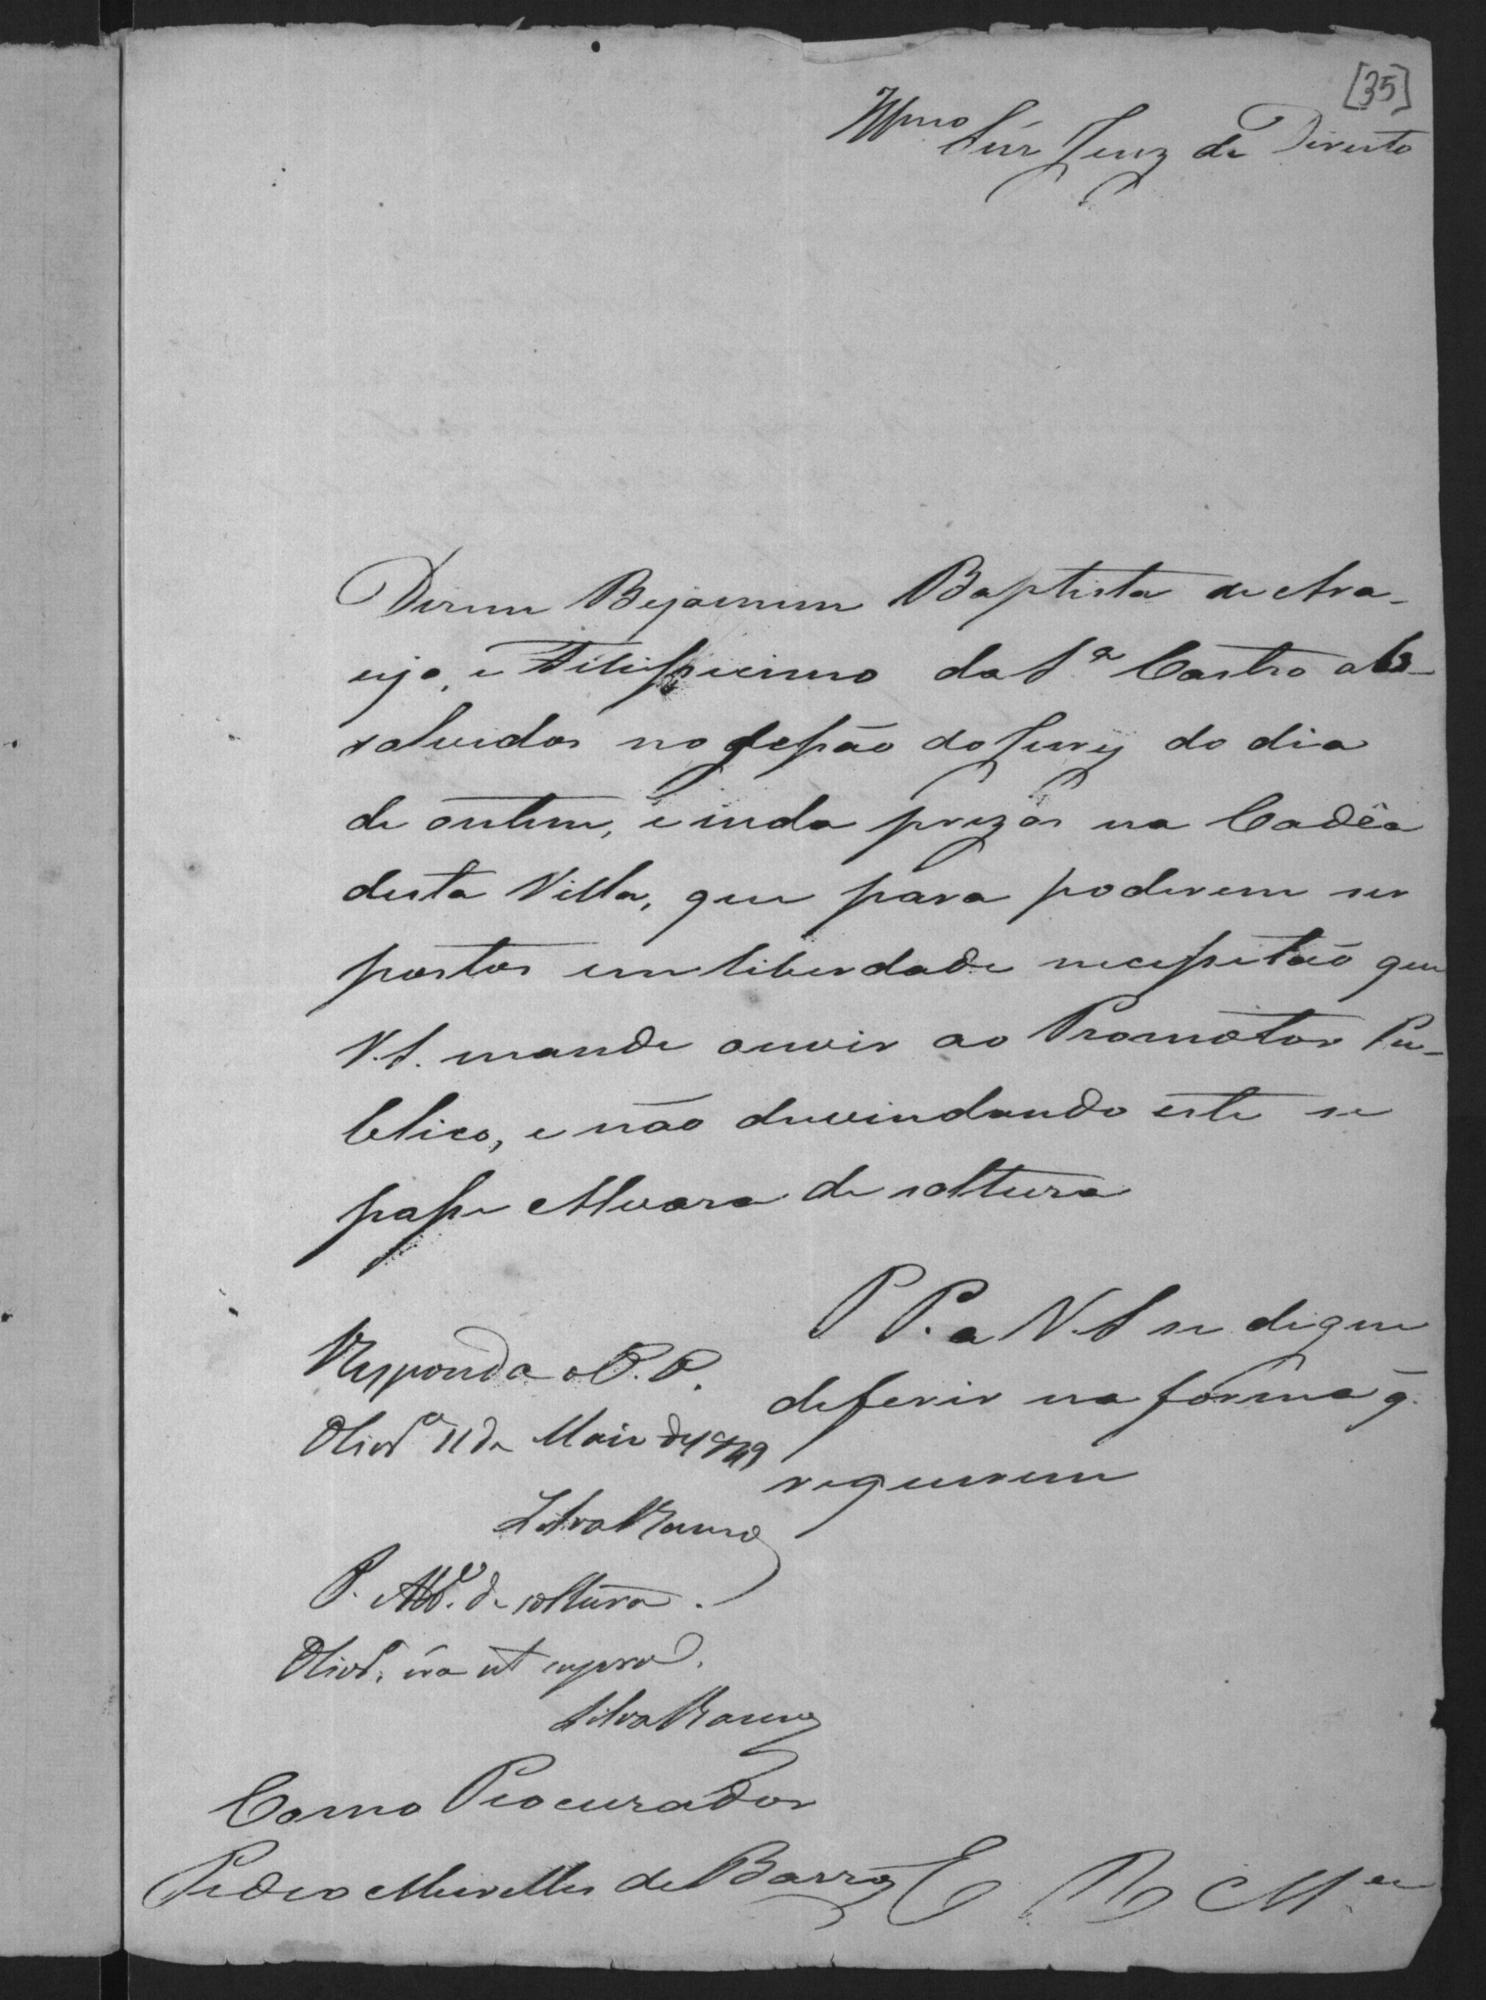 [35]
Illmo Snr Juiz de Direito
Dizem Bejamim Baptista de Ara-
ujo, e da Sa. Castro ab-
solvidos no sessão do Jury do dia
de ontem, e inda prezos na Cadêa
desta Villa, que para poderem ser
postos em liberdade necessitão que
V.S. mande ouvir ao Promotor Pu-
blico, e não duvindando este se
passe Alvara de soltura
P P. a V.S se digne
deferir na forma q̃.
requerem
Responda o P. P.
Olivª 11 de Maio de 1849
Silva Ramos
P. Alv.º de soltura.
Oliv. era ut supra.
Silva Ramos
Como Procurador
Pedro Meirelles de Barros
E R Mce